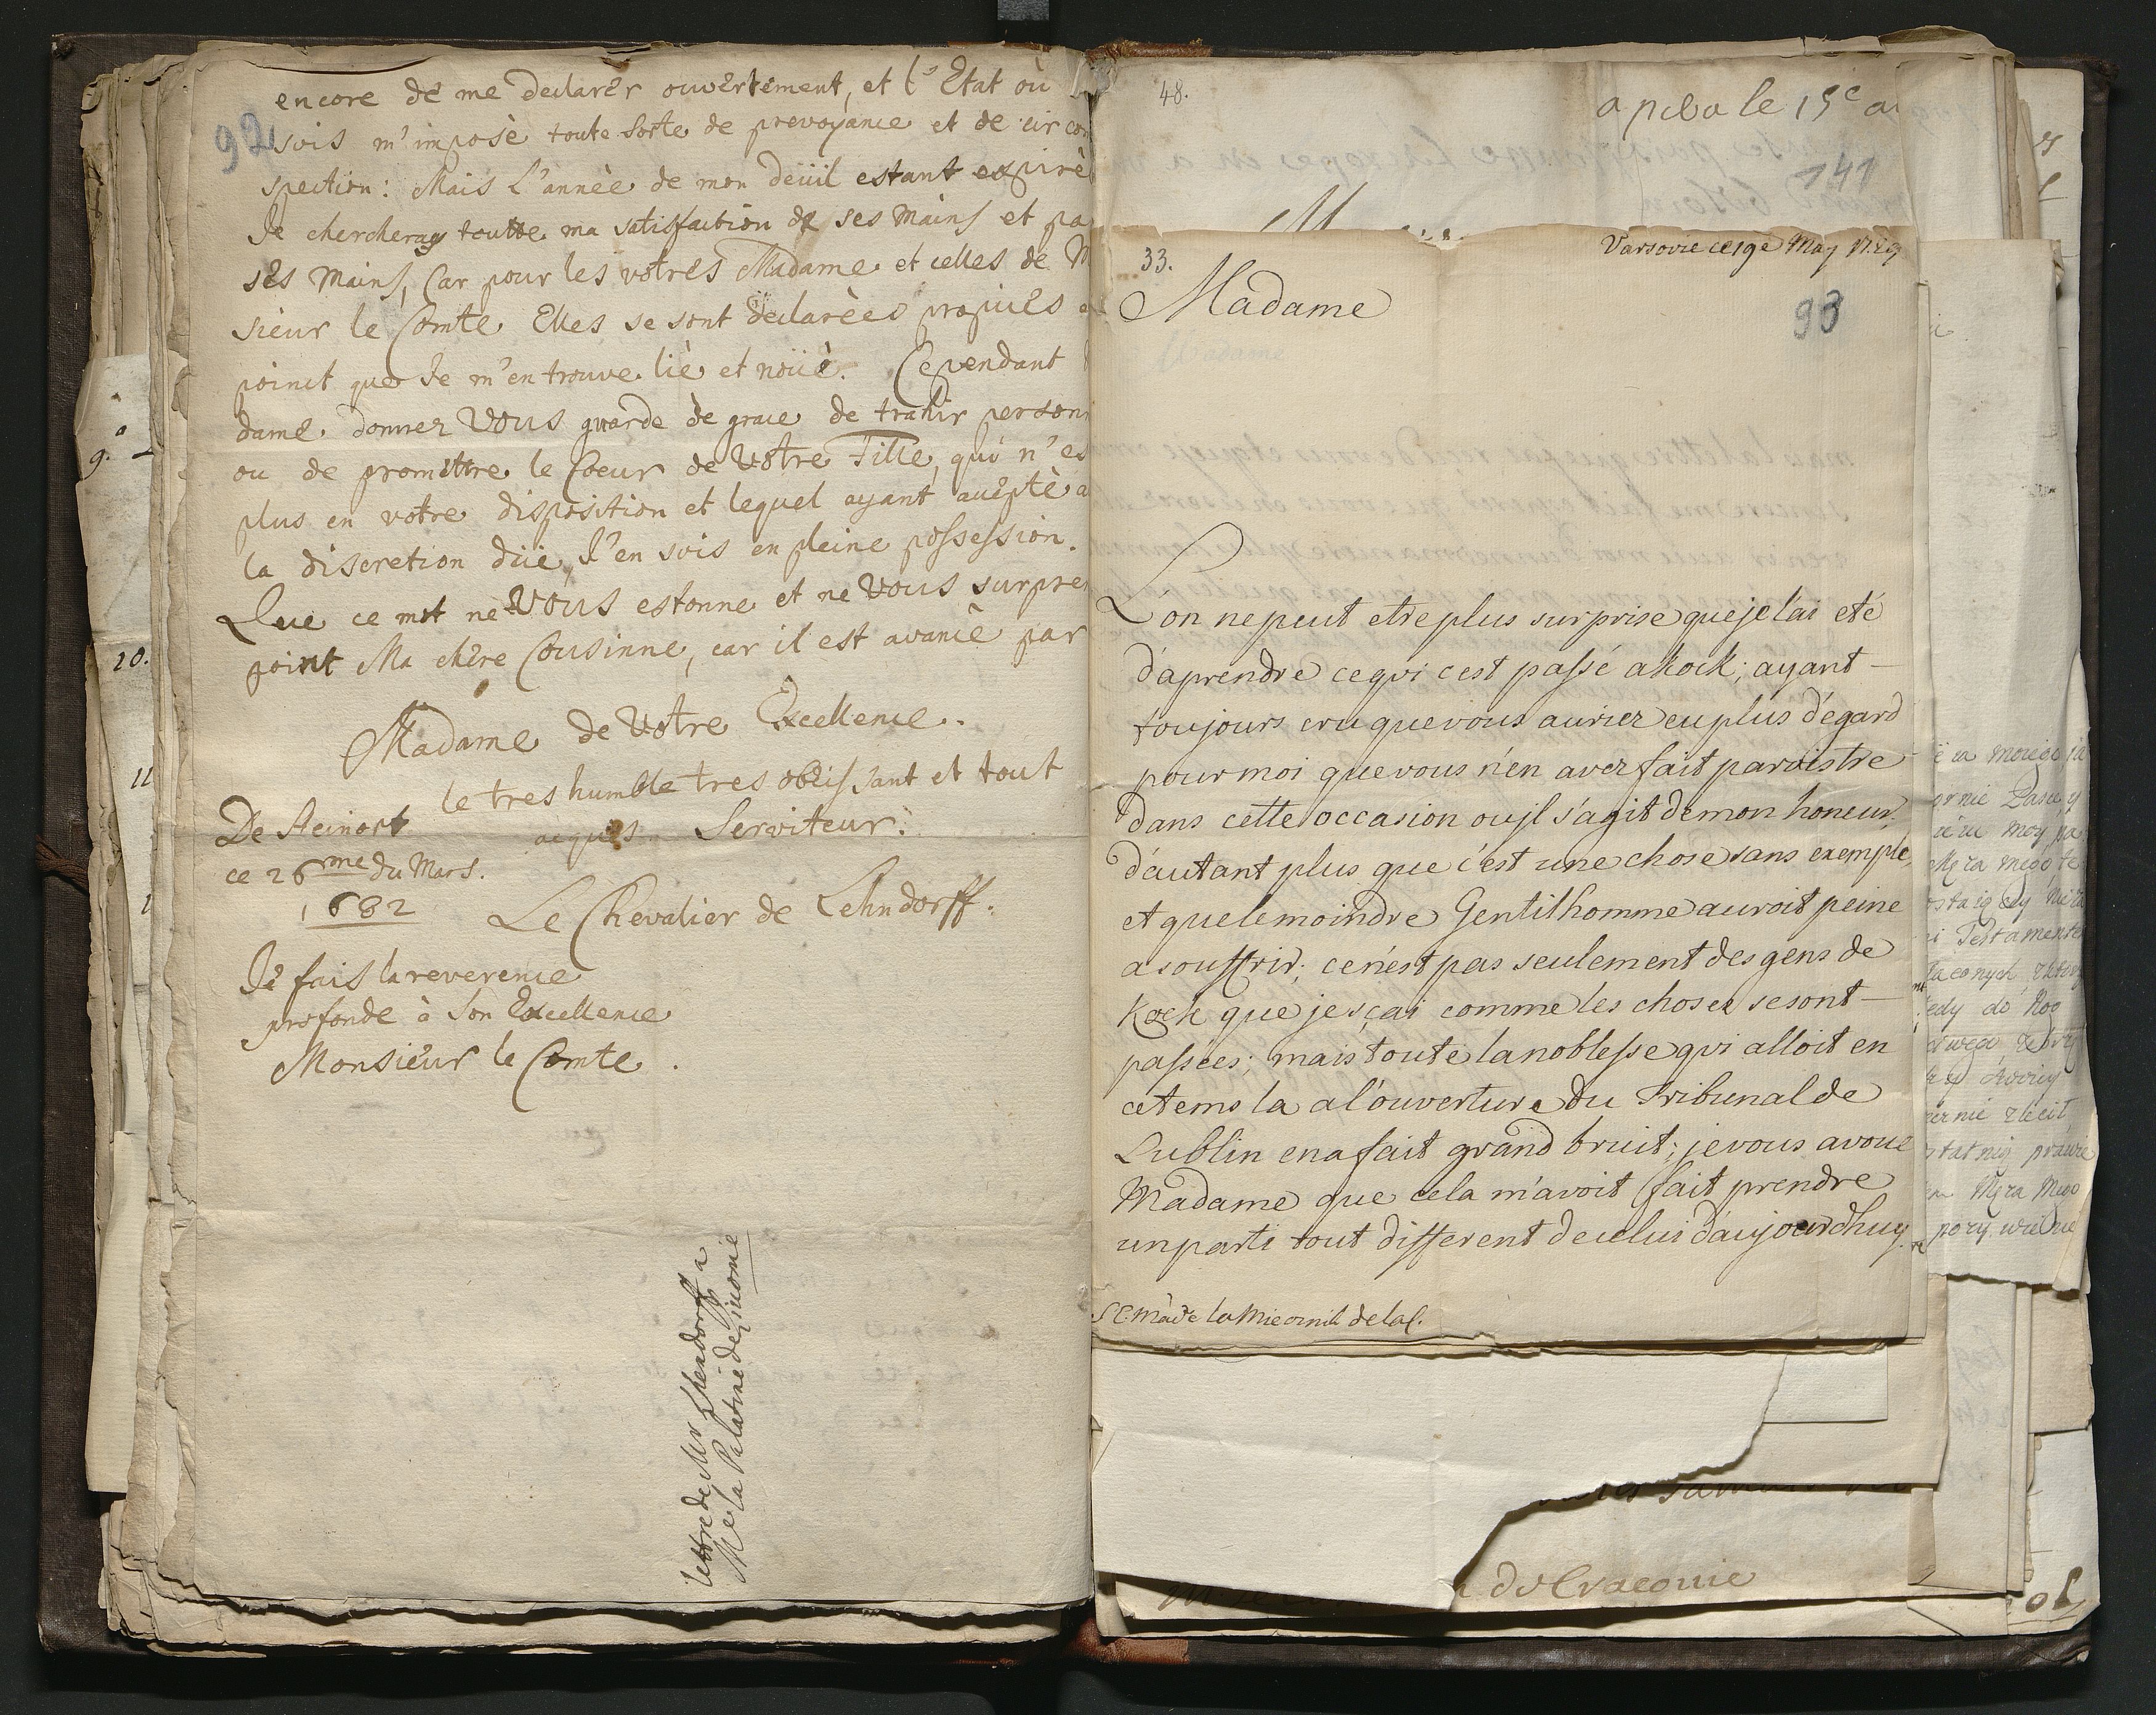 92
encore de me declarer ouvertement, et l'Etat où
sois m'imposè toute sorte de prevoyance et de circon
spection: Mais L'année de mon deüil estant expirèe
Je chercheray toutte ma satisfaction de ses Mains et pa
ses Mains, Car pour les votres Madame et celles de M
sieur le Comte Elles se sont declarèes propices
poinct que Je m'en trouve liè et noüè. Cependant
dame donnez Vous guarde de grace de trahir person
ou de promettre le Coeur de Votre Fille, qui n'es
plus en votre disposition et lequel ayant acceptè a
la discretion düe, J'en sois en pleine possession.
Que ce mot ne Vous estonne et ne Vous surpre
point Ma chere Cousinne, car il est avancè par
Madame de Votre Excellence
le tres humble tres obeissant et tout
acquis Serviteur.
De Steinort
ce 26me du Mars.
1682
Le Chevalier de Lehndorff.
Je fais la reverence
profonde à Son Excellence
Monsieur le Comte.
lettre de Mr Lhendorff a
Me la Palatine de Livonie
48.
le 15e
141
33.
Varsovie ce 19e May 1729
93
Madame
L'on ne peut etre plus surprise que je l'ai eté
d'aprendre ce qvi c'est passé a Kock; ayant
toujours cru que vous auriez eu plus d'egard
pour moi que vous n'en avez fait paroistre
dans cette occasion ou jl s'agit de mon honeur,
d'autant plus que c'est une chose sans exemple,
et que le moindre Gentilhomme auroit peine
a souffrir; ce n'est pas seulement des gens de
Kock que je sçai comme les choses se sont
passées; mais toute la noblesse qvi alloit en
ce tems la a l'ouverture du Tribunal de
Lublin en a fait grand bruit; je vous avoue
Madame que cela m'avoit fait prendre
un parti tout different de celui d'aujourdhuy
de Cracovie
9.
10.
11
Testament